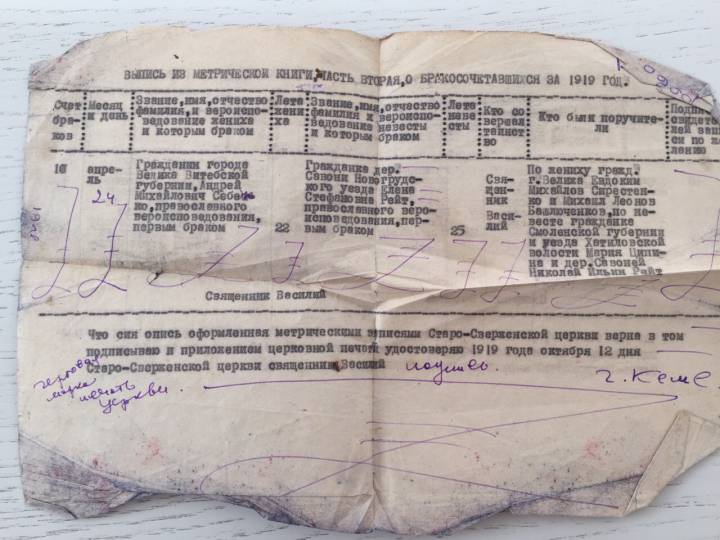 ВЫПИСЬ ИЗ МЕТРИЧЕСКОЙ КНИГИ, ЧАСТЬ ВТОРАЯ, О БРАКОСОЧЕТАВШИХСЯ ЗА 1919 ГОД.
Счет
бра-
ков
Месяц
и день
Звание, имя, отчество
фамилия, и вероиспо-
ведование жениха
и которым браком
Лета
жени
ха
Звание, имя, отчество
фамилия и вероиспо-
ведование невесты
и которым браком
Лета
неве
сты
Кто со
вершал
таинст
во
Кто были поручите-
ли
Подпи
свидет
лей зап
си по ж
ланию
10
апре-
ль
24
Гражданин города
Велижа Витебской
губернии, Андрей
Михайлович
православного
вероисповедования,
первым браком
22
Гражданка дер.
Савони Новогрудс-
кого уезда Елена
Стефановна Рейт,
православного веро-
исповедования, пер-
вым браком
25
Свя-
щен-
ник
Васи-
лий
По жениху гражд.
г. Велижа Евдоким
Михайлов
и Михаил Леонов
по не-
весте гражданке
Смоленской губернии
и уезда Хатиловской
волости Мария Ципи-
на и дер. Савоней
Николай Ильин Рейт
Священник Василий
Что сия опись оформленная метрическими записями Старо-Сверженской церкви верна в том
подписываю и приложением церковной печати удостоверяю 1919 года октября 12 дня
Старо-Сверженской церкви священник Василий подпись.
гербовая
марка
печать
церкви.